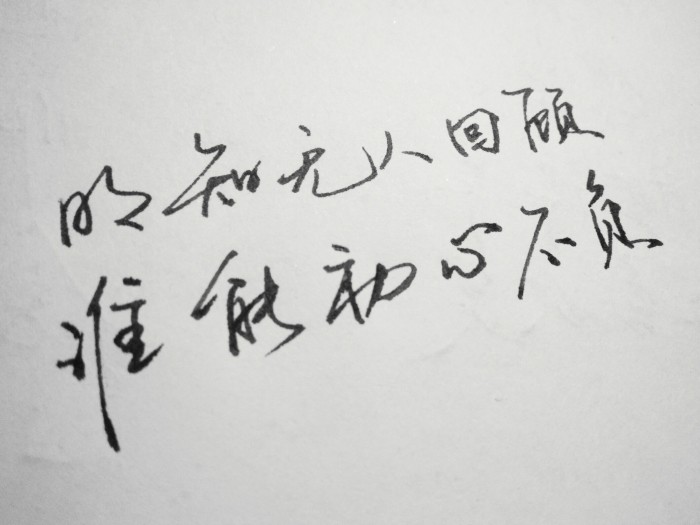 明知无人回顾
谁能初心不负